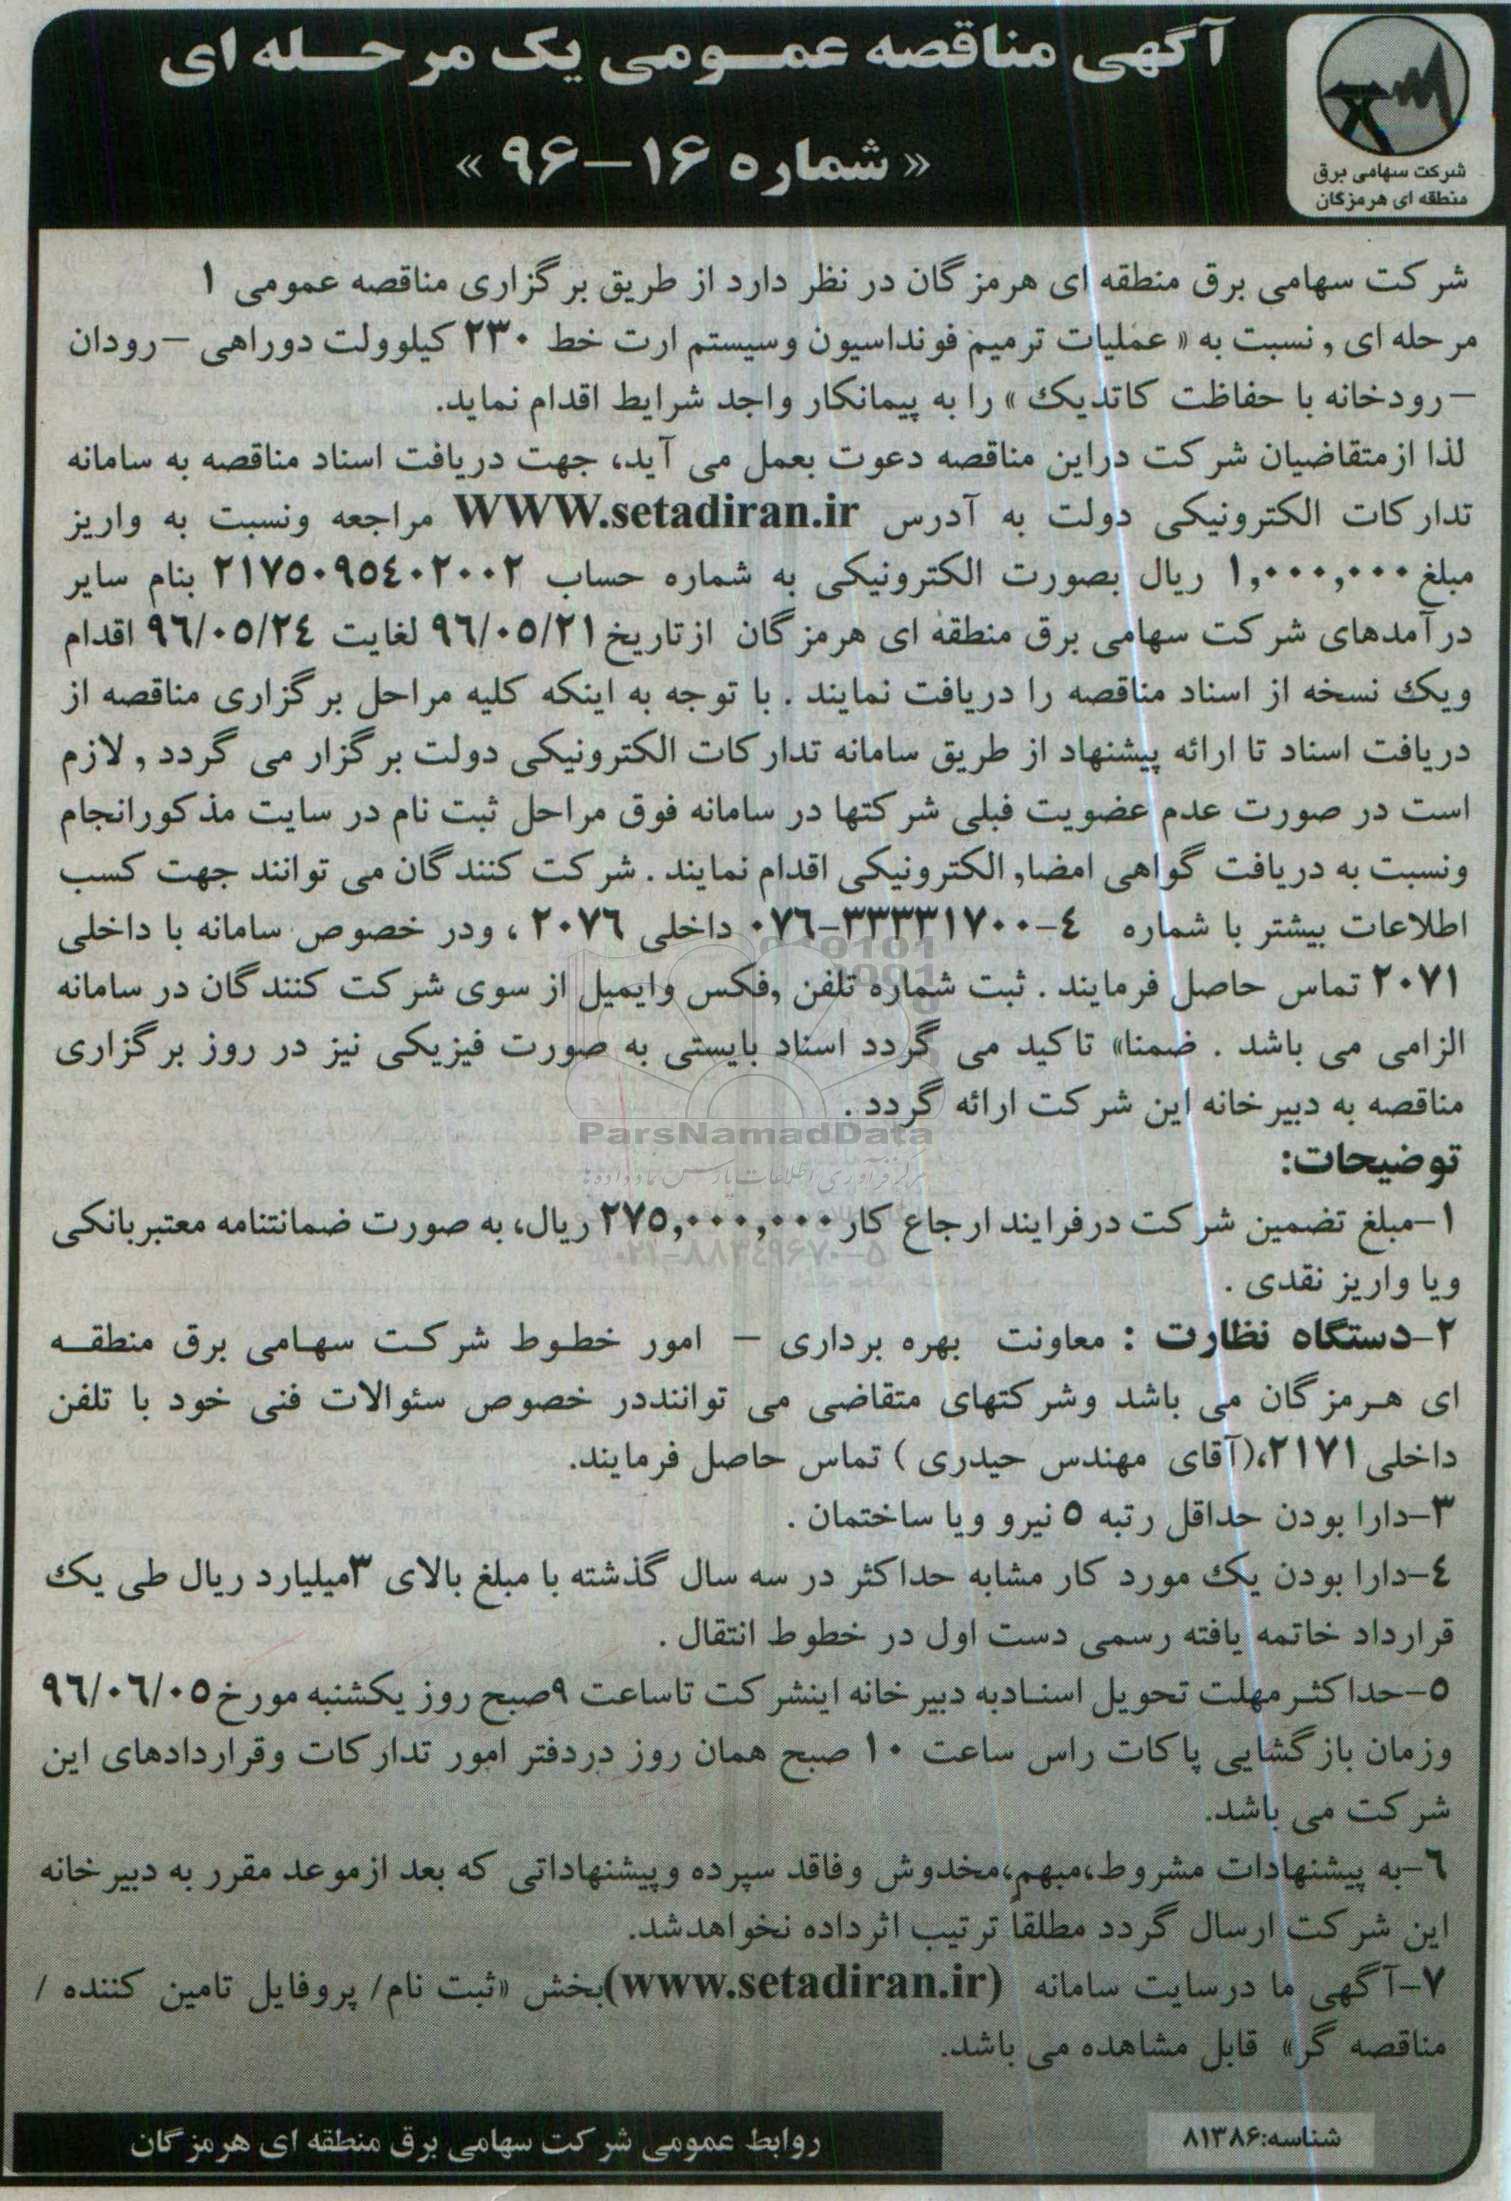 آگهی مناقصه عمومی یک مرحله ای
« شماره ۱۶–۹۶ »
شرکت سهامی برق
منطقه ای هرمزگان
شرکت سهامی برق منطقه ای هرمزگان در نظر دارد از طریق برگزاری مناقصه عمومی ۱
مرحله ای , نسبت به « عملیات ترمیم فونداسیون وسیستم ارت خط ۲۳۰ کیلوولت دوراهی –رودان
–رودخانه با حفاظت کاتدیک » را به پیمانکار واجد شرایط اقدام نماید.
لذا ازمتقاضیان شرکت دراین مناقصه دعوت بعمل می آید، جهت دریافت اسناد مناقصه به سامانه
تدارکات الکترونیکی دولت به آدرس WWW.setadiran.ir مراجعه ونسبت به واریز
مبلغ ۱,۰۰۰,۰۰۰ ریال بصورت الکترونیکی به شماره حساب ۲۱۷۵۰۹۵٤۰۲۰۰۲ بنام سایر
درآمدهای شرکت سهامی برق منطقه ای هرمزگان ازتاریخ ۹٦/۰۵/۲۱ لغایت ۹٦/۰۵/۲٤ اقدام
ویک نسخه از اسناد مناقصه را دریافت نمایند . با توجه به اینکه کلیه مراحل برگزاری مناقصه از
دریافت اسناد تا ارائه پیشنهاد از طریق سامانه تدارکات الکترونیکی دولت برگزار می گردد , لازم
است در صورت عدم عضویت قبلی شرکتها در سامانه فوق مراحل ثبت نام در سایت مذکورانجام
ونسبت به دریافت گواهی امضا, الکترونیکی اقدام نمایند . شرکت کنندگان می توانند جهت کسب
اطلاعات بیشتر با شماره ٤-۰۷٦-۳۳۳۳۱۷۰۰ داخلی ۲۰۷٦ ، ودر خصوص سامانه با داخلی
۲۰۷۱ تماس حاصل فرمایند . ثبت شماره تلفن ,فکس وایمیل از سوی شرکت کنندگان در سامانه
الزامی می باشد . ضمنا» تاکید می گردد اسناد بایستی به صورت فیزیکی نیز در روز برگزاری
مناقصه به دبیرخانه این شرکت ارائه گردد .
ParsNamadData
مرکز فرآوری اطلاعات پارس نماد داده ها
توضیحات:
۱–مبلغ تضمین شرکت درفرایند ارجاع کار ۲۷۵,۰۰۰,۰۰۰ ریال، به صورت ضمانتنامه معتبربانکی
۰۲۱-۸۸۳۴۹۶۷۰-۵
ویا واریز نقدی .
۲–دستگاه نظارت : معاونت بهره برداری – امور خطوط شرکت سهامی برق منطقه
ای هرمزگان می باشد وشرکتهای متقاضی می تواننددر خصوص سئوالات فنی خود با تلفن
داخلی ۲۱۷۱،(آقای مهندس حیدری ) تماس حاصل فرمایند.
۳–دارا بودن حداقل رتبه ۵ نیرو ویا ساختمان .
٤–دارا بودن یک مورد کار مشابه حداکثر در سه سال گذشته با مبلغ بالای ۳میلیارد ریال طی یک
قرارداد خاتمه یافته رسمی دست اول در خطوط انتقال .
۵–حداکثرمهلت تحویل اسنادبه دبیرخانه اینشرکت تاساعت ۹صبح روز یکشنبه مورخ ۹٦/۰٦/۰۵
وزمان بازگشایی پاکات راس ساعت ۱۰ صبح همان روز دردفتر امور تدارکات وقراردادهای این
شرکت می باشد.
٦–به پیشنهادات مشروط،مبهم،مخدوش وفاقد سپرده وپیشنهاداتی که بعد ازموعد مقرر به دبیرخانه
این شرکت ارسال گردد مطلقاً ترتیب اثرداده نخواهدشد.
۷–آگهی ما درسایت سامانه (www.setadiran.ir)بخش «ثبت نام/ پروفایل تامین کننده /
مناقصه گر» قابل مشاهده می باشد.
شناسه:۸۱۳۸۶
روابط عمومی شرکت سهامی برق منطقه ای هرمزگان